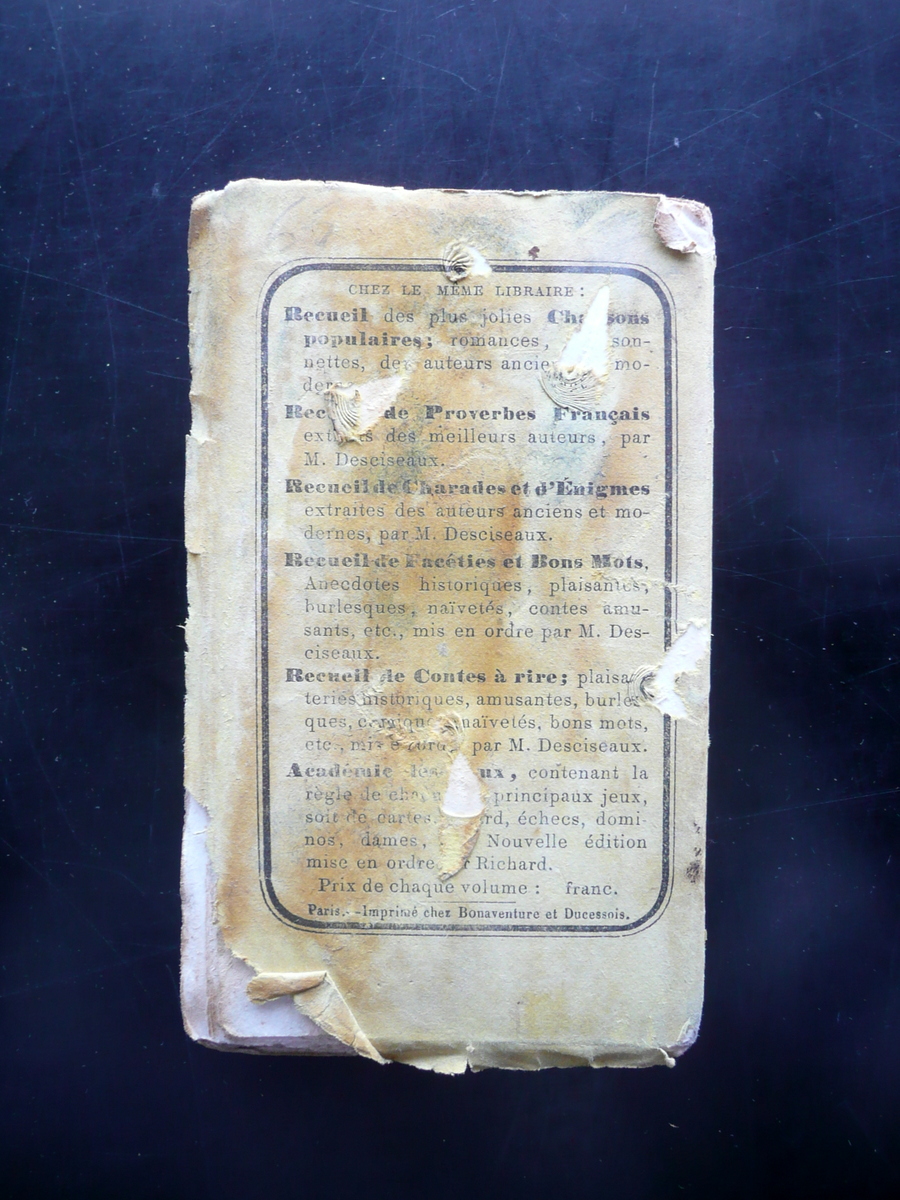 CHEZ LE MÊME LIBRAIRE :
Recueil des plus jolies Chansons
populaires; romances, son-
nettes, des auteurs mo-
Recueil de Proverbes Français
extraits des meilleurs auteurs, par
M. Desciseaux.
Recueil de Charades et d'Énigmes
extraites des auteurs anciens et mo-
dernes, par M. Desciseaux.
Recueil de Facéties et Bons Mots,
Anecdotes historiques, plaisantes,
burlesques, naïvetés, contes amu-
sants, etc., mis en ordre par M. Des-
ciseaux.
Recueil de Contes à rire; plaisan-
teries historiques, amusantes, burles-
ques, naïvetés, bons mots,
etc., par M. Desciseaux.
Académie des Jeux, contenant la
règle de principaux jeux,
soit de cartes, échecs, domi-
nos, dames, Nouvelle édition
mise en ordre Richard.
Prix de chaque volume : franc.
Paris.--Imprimé chez Bonaventure et Ducessois.